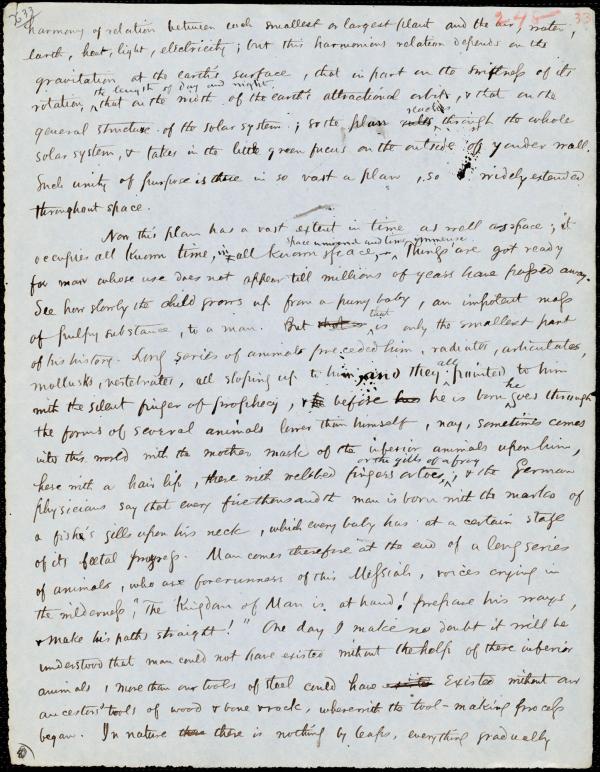 33 33
harmony of relation between each smallest or largest plant and the air, water,
earth, heat, light, electricity; but this harmonious relation depends on the
gravitation at the earth's surface, that in part on the swiftness of its
the length of day and night,
rotation, ^ that on the width of the earth's attractional orbit, & that on the
reaches
general structure of the solar system; so the plan rules through the whole
solar system, & takes in the little green fucus on the outside of yonder wall.
Such unity of purpose is there in so vast a plan, so widely extended
throughout space.
Now this plan has a vast extent in time as well as space; it
space unmeasured and time immense.
occupies all known time, in all known space, Things are got ready
for man whose use does not appear till millions of years have passed away.
See how slowly the child grows up from a puny baby, an impotent mass
that
of pulpy substance, to a man. But ^ is only the smallest part
of his history. Long series of animals preceded him, radiates, articulates,
all
mollusks, vertebrates, all sloping up to him, and they ^ pointed to him
he
with the silent finger of prophecy, & before has he is born ^ goes through
the forms of several animals lower than himself, nay, sometimes comes
into this world with the mother mark of the inferior animals upon him,
or the gills of a frog
here with a hair lip, there with webbed fingers or toes, ^ & the German
physicians say that every five thousandth man is born with the marks of
a fish's gills upon his neck, which every baby has at a certain stage
of its fœtal progress. Man comes therefore at the end of a long series
of animals, who are forerunners of this Messiah, voices crying in
the wilderness, "The Kingdom of Man is at hand! prepare his ways,
& make his paths straight!" One day I make no doubt it will be
understood that man could not have existed without the help of these inferior
animals, more than our tools of steel could have existed without our
ancestors' tools of wood & bone & rock, wherewith the tool-making process
began. In nature there there is nothing by leaps, everything gradually